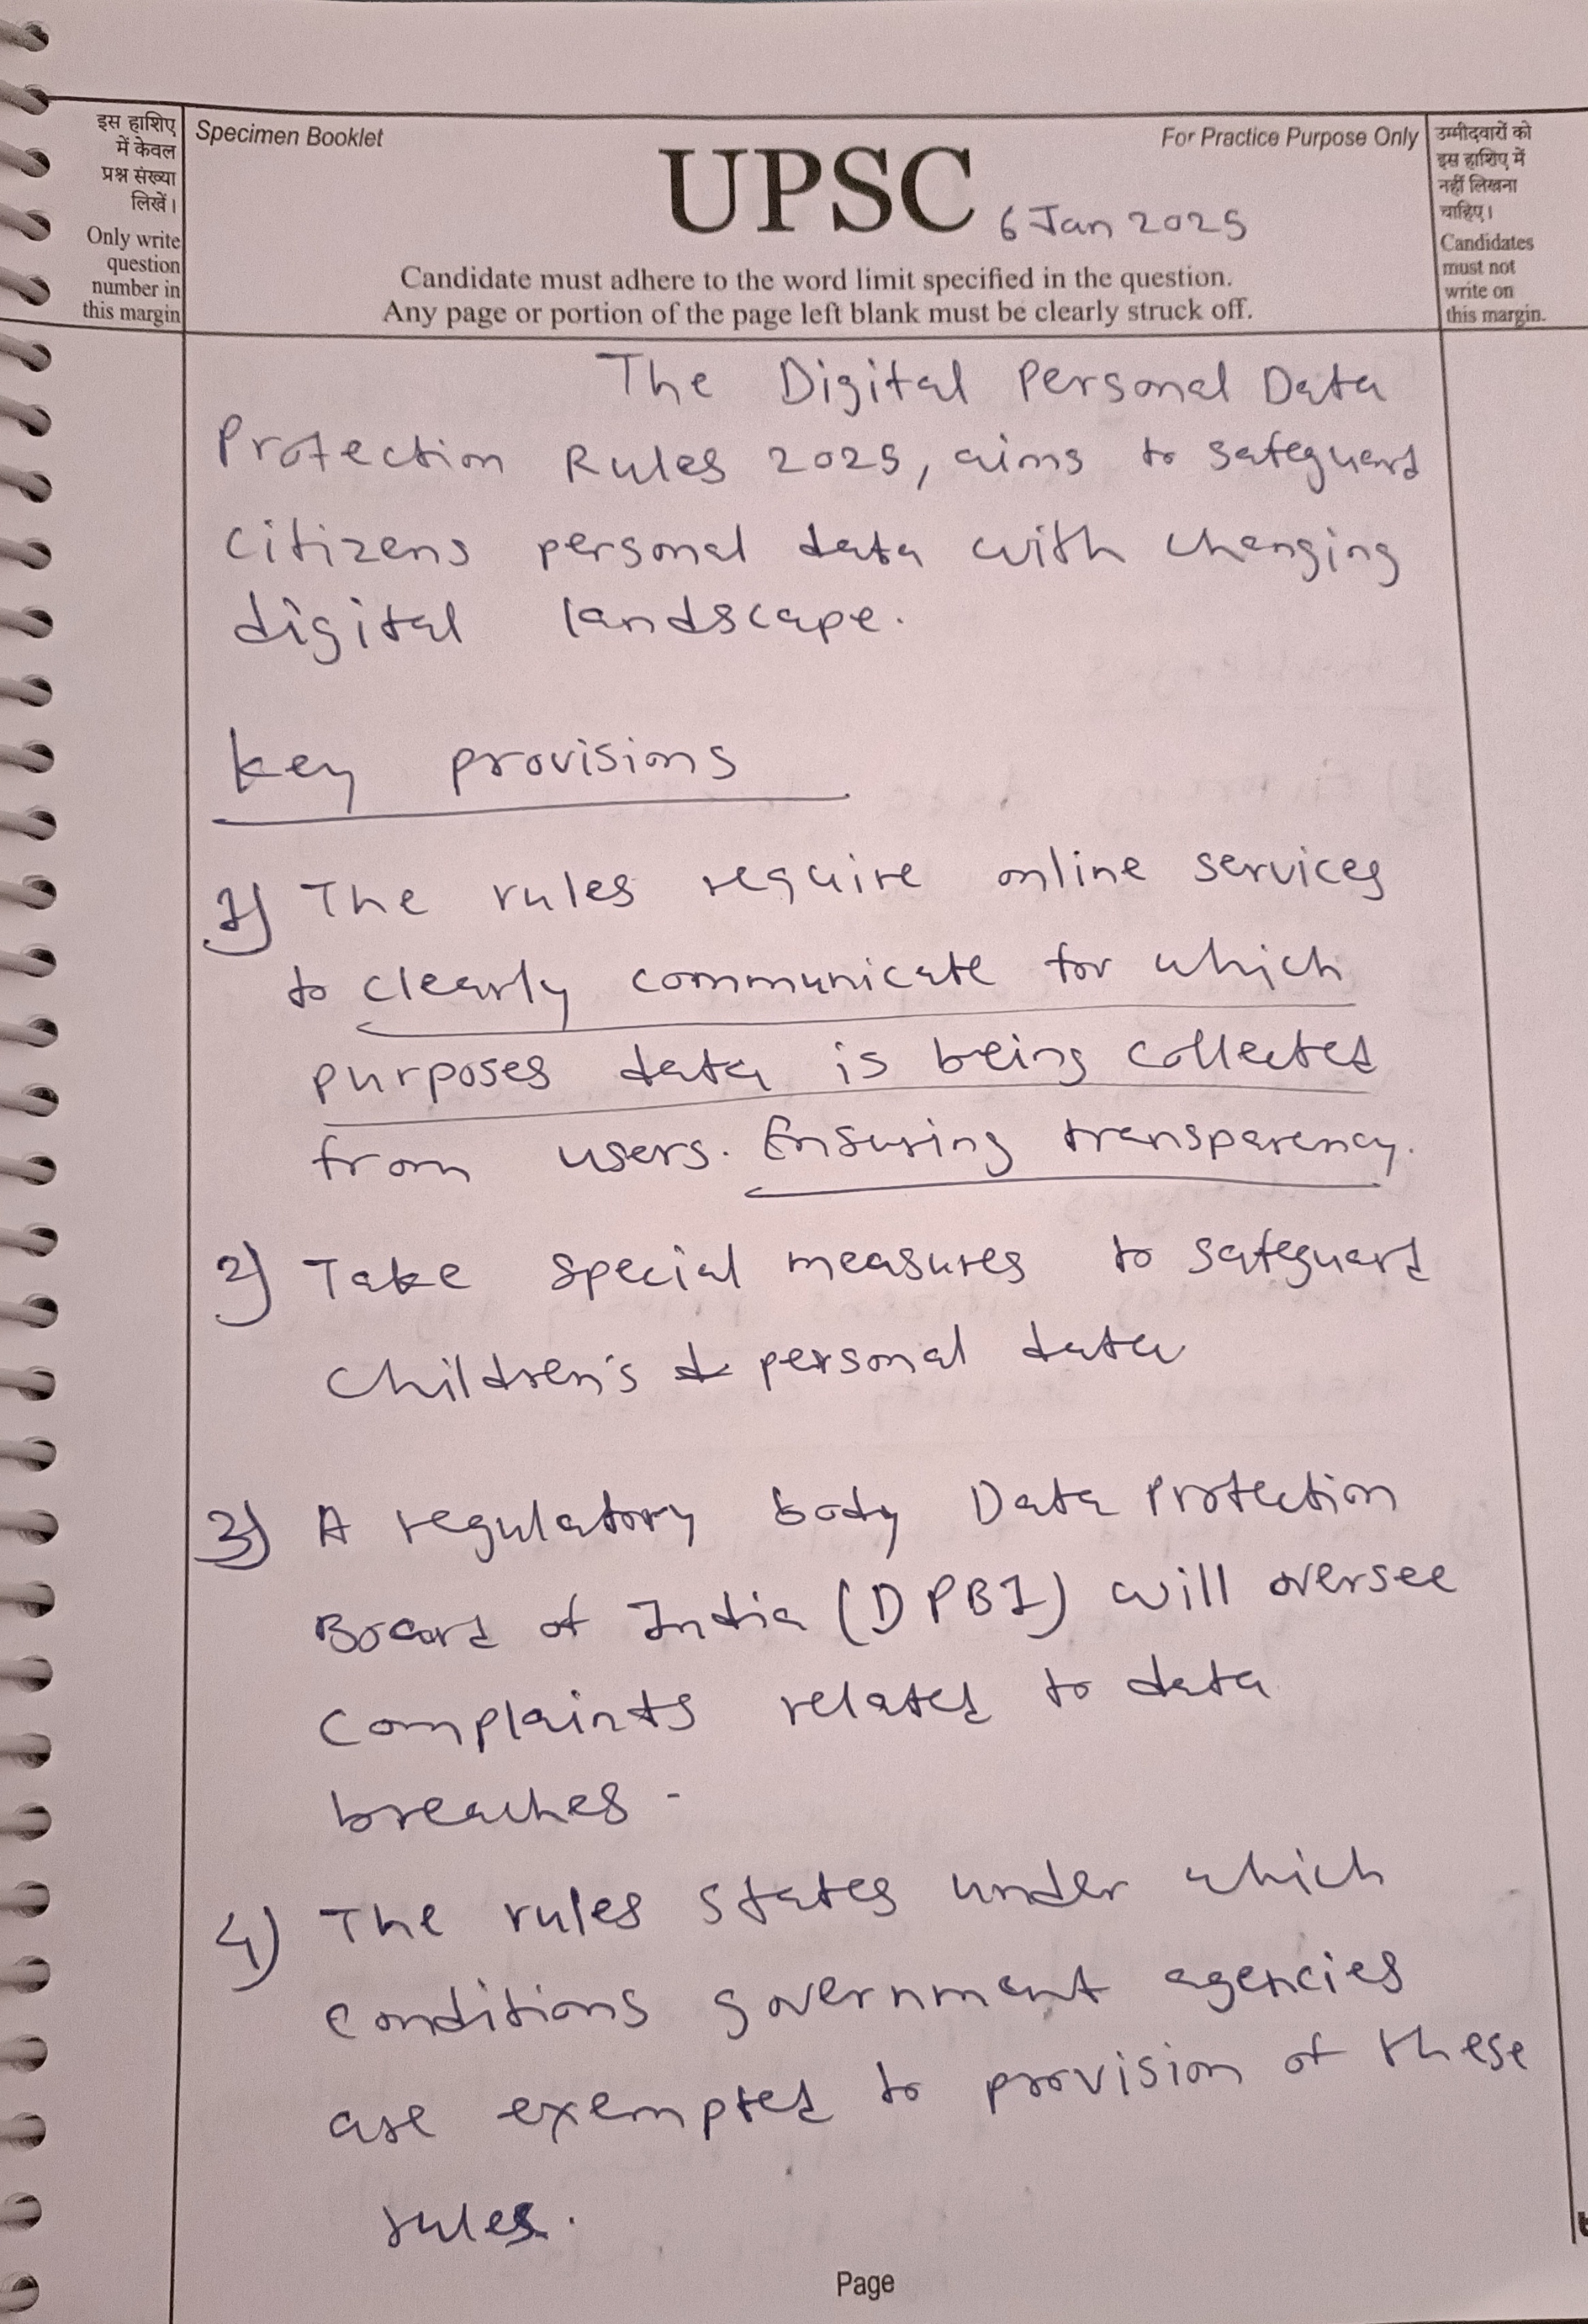 इस हाशिए
में केवल
प्रश्न संख्या
लिखें।
Only write
question
number in
this margin
Specimen Booklet
For Practice Purpose Only
UPSC
6 Jan 2025
Candidate must adhere to the word limit specified in the question.
Any page or portion of the page left blank must be clearly struck off.
उम्मीदवारों को
इस हाशिए में
नहीं लिखना
चाहिए।
Candidates
must not
write on
this margin.
The Digital Personal Data
Protection Rules 2025, aims to safeguard
citizens personal data with changing
digital landscape.
Key provisions
1) The rules require online services
to clearly communicate for which
purposes data is being collected
from users. Ensuring transparency.
2) Take special measures to safeguard
children's personal data
3) A regulatory body Data Protection
Board of India (DPBI) will oversee
complaints related to data
breaches.
4) The rules states under which
conditions government agencies
are exempted to provision of these
rules.
Page